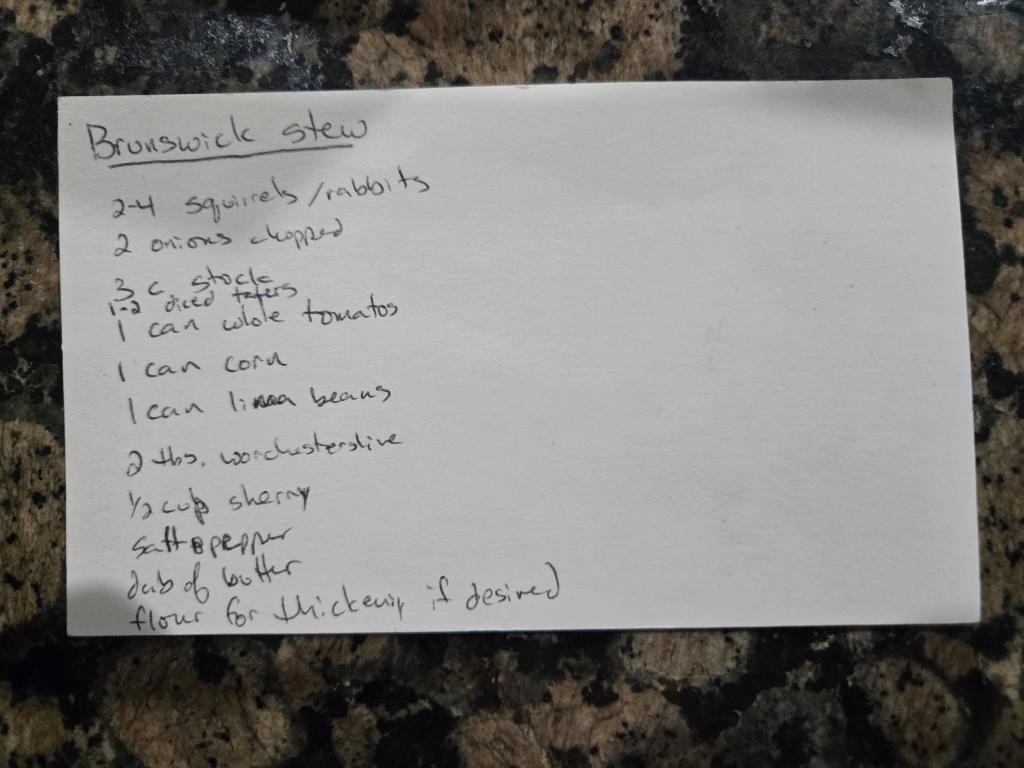 Brunswick stew
2-4 squirrels/rabbits
2 onions chopped
3 c stock
1-2 diced taters
1 can whole tomatos
1 can corn
1 can lima beans
2 tbs. worchestershire
1/2 cup sherry
salt & pepper
dab of butter
flour for thickening if desired